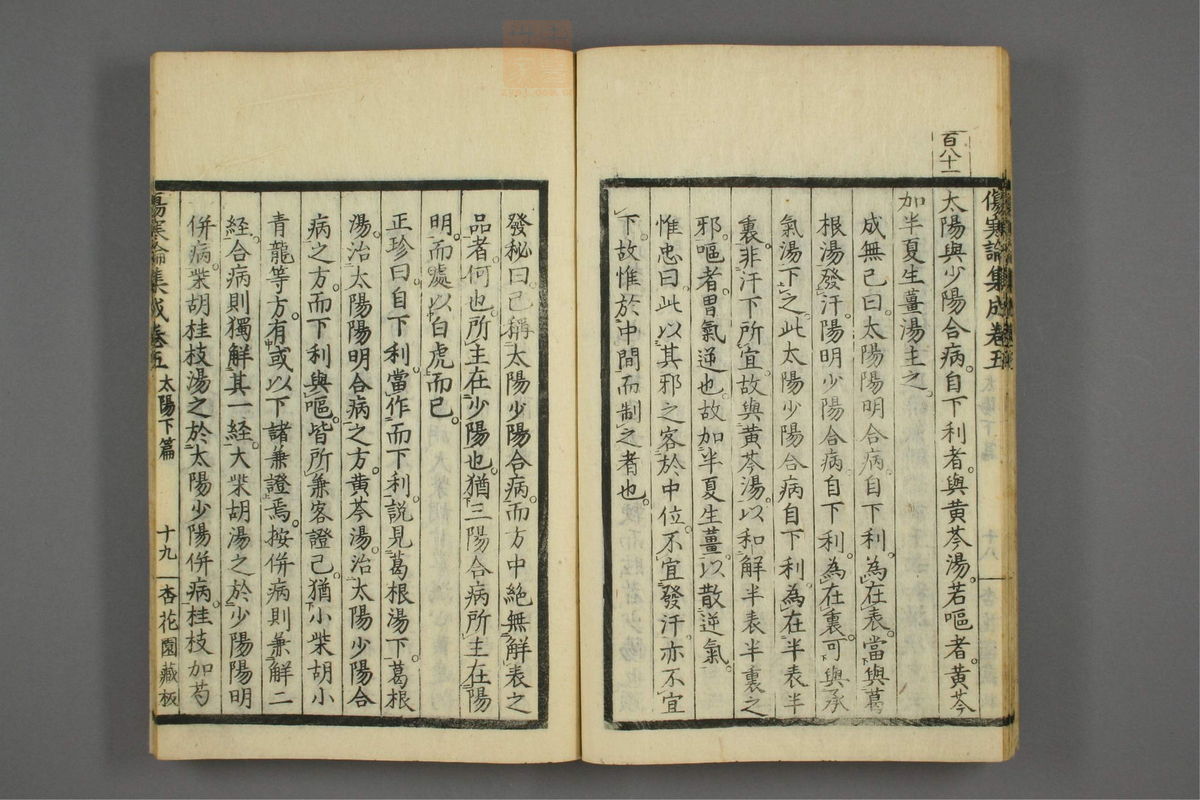 百八十一
傷寒論集成卷五
太陽與少陽合病。自下利者。與黄芩湯。若嘔者。黄芩
加半夏生薑湯主之。
成無已曰。太陽陽明合病。自下利。為在表。當與葛
根湯發汗。陽明少陽合病。自下利。為在裏。可與承
氣湯下之。此太陽少陽合病自下利。為在半表半
裏。非汗下所宜。故與黄芩湯。以和解半表半裏之
邪。嘔者。胃氣逆也。故加半夏生薑。以散逆氣。
惟忠曰。此以其邪之客於中位。不宜發汗。亦不宜
下。故惟於中間而制之者也。
發秘曰。已稱太陽少陽合病。而方中絶無解表之
品者。何也。所主在少陽也。猶三陽合病。所主在陽
明。而處以白虎而已。
正珍曰。自下利。當作而下利。説見葛根湯下。葛根
湯。治太陽陽明合病之方。黄芩湯。治太陽少陽合
病之方。而下利與嘔。皆所兼客證已。猶小柴胡小
青龍等方。有或以下諸兼證焉。按併病則兼解二
経。合病則獨解其一経。大柴胡湯之於少陽陽明
併病。柴胡桂枝湯之於太陽少陽併病。桂枝加芍
傷寒論集成卷五 太陽下篇 十九 杏花園藏板